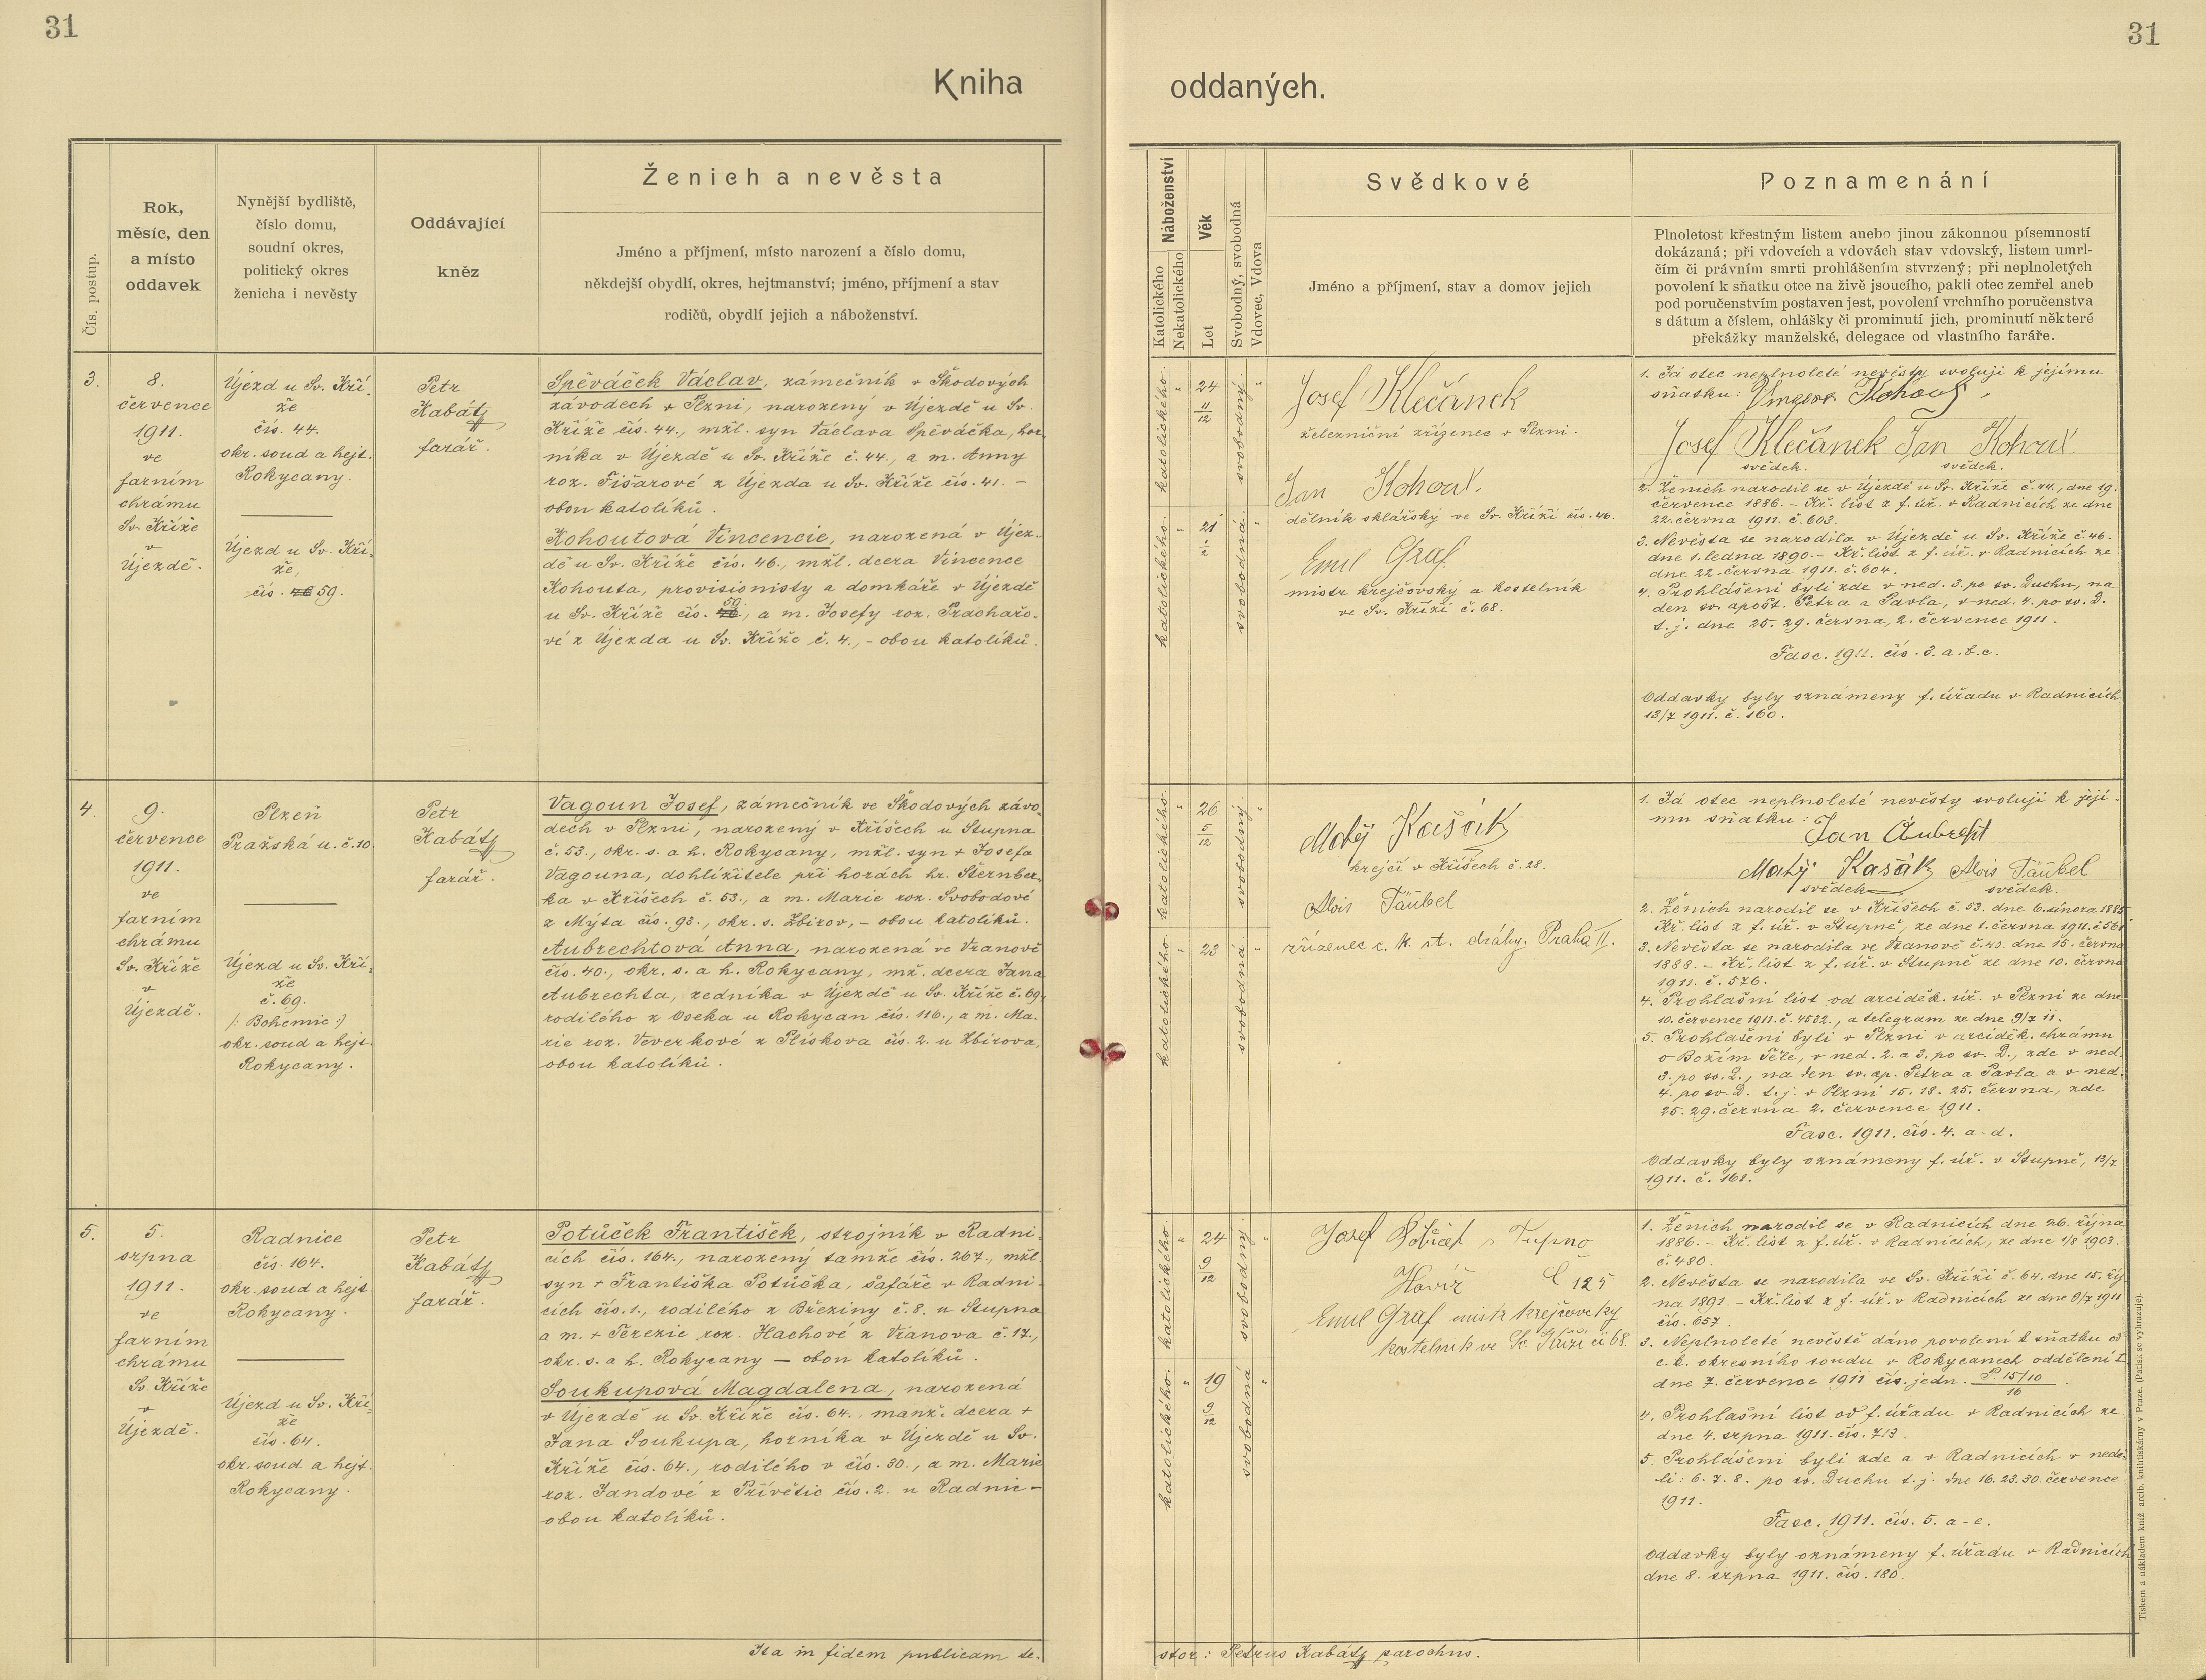 31
31
Kniha
oddaných.
Čís. postup.
Rok,
měsíc, den
a místo
oddavek
Nynější bydliště,
číslo domu,
soudní okres,
politický okres
ženicha i nevěsty
Oddávající
kněz
Ženich a nevěsta
Jméno a příjmení, místo narození a číslo domu,
někdejší obydlí, okres, hejtmanství; jméno, příjmení a stav
rodičů, obydlí jejich a náboženství.
Náboženství
Katolického
Nekatolického
Věk
Let
Svobodný, svobodná
Vdovec, Vdova
Svědkové
Jméno a příjmení, stav a domov jejich
Poznamenání
Plnoletost křestným listem anebo jinou zákonnou písemností
dokázaná; při vdovcích a vdovách stav vdovský, listem umrl-
čím či právním smrti prohlášením stvrzený; při neplnoletých
povolení k sňatku otce na živě jsoucího, pakli otec zemřel aneb
pod poručenstvím postaven jest, povolení vrchního poručenstva
s dátum a číslem, ohlášky či prominutí jich, prominutí některé
překážky manželské, delegace od vlastního faráře.
3.
8.
července
1911.
ve
farním
chrámu
Sv. Kříže
v
Újezdě.
Újezd u Sv. Kří-
že
čís. 44.
okr. soud a hejt.
Rokycany.
Újezd u Sv. Kří-
že,
čís. 59.
Petr
Kabátz
farář.
Spěváček Václav, zámečník v Škodových
závodech v Plzni, narozený v Újezdě u Sv.
Kříže čís. 44., mžl. syn Václava Spěváčka, hor-
níka v Újezdě u Sv. Kříže č. 44., a m. Anny
roz. Fišarové z Újezda u Sv. Kříže čís. 41. -
obou katolíků.
Kohoutová Vincencie, narozená v Újez-
dě u Sv. Kříže čís. 46., mžl. dcera Vincence
Kohouta, provisionisty a domkáře v Újezdě
u Sv. Kříže čís. 59, a m. Josefy roz. Prachařo-
vé z Újezda u Sv. Kříže č. 4., - obou katolíků.
katolického
24 11/12
svobodný
katolického
21
svobodná
Josef Klečánek
železniční zřízenec v Plzni.
Jan Kohout.
dělník sklářský ve Sv. Kříži čís. 46.
Emil Graf
mistr krejčovský a kostelník
ve Sv. Kříži č. 68.
1. Já otec neplnoleté nevěsty svoluji k jejímu
sňatku: Kohout.
Josef Klečánek Jan Kohout.
svědek. svědek.
2. Ženich narodil se v Újezdě u Sv. Kříže č. 44., dne 19.
července 1886. - Kř. list z f. úř. v Radnicích ze dne
22. června 1911. č. 603.
3. Nevěsta se narodila v Újezdě u Sv. Kříže č. 46.
dne 1. ledna 1890. - Kř. list z f. úř. v Radnicích ze
dne 22. června 1911. č. 604.
4. Prohlášeni byli zde v ned. 3. po sv. Duchu, na
den sv. apošt. Petra a Pavla, v ned. 4. po sv. D.
t. j. dne 25. 29. června, 2. července 1911.
Fasc. 1911. čís. 3. a. b. c.
Oddavky byly oznámeny f. úřadu v Radnicích
13/7 1911. č. 160.
4.
9.
července
1911.
ve
farním
chrámu
Sv. Kříže
v
Újezdě.
Plzeň
Pražská u. č. 10
Újezd u Sv. Kří-
že
č. 69.
/: Bohemie :/
okr. soud a hejt.
Rokycany.
Petr
Kabátz
farář.
Vagoun Josef, zámečník ve Škodových závo-
dech v Plzni, narozený v Kříšech u Stupna
č. 53., okr. s. a h. Rokycany, mžl. syn + Josefa
Vagouna, dohlížitele při horách hr. Šternber-
ka v Kříšech č. 53., a m. Marie roz. Svobodové
z Mýta čís. 93., okr. s. Zbirov, - obou katolíků.
Aubrechtová Anna, narozená ve Vranově
čís. 40., okr. s. a h. Rokycany, mž. dcera Jana
Aubrechta, zedníka v Újezdě u Sv. Kříže č. 69.
rodilého z Oseka u Rokycan čís. 116., a m. Ma-
rie roz. Veverkové z Plískova čís. 2. u Zbirova,
obou katolíků.
katolického
26 5/12
svobodný
katolického
23
svobodná
Matěj Kasák
krejčí v Kříšech č. 28.
Alois Täubel
zřízenec c. k. st. dráhy. Praha II.
1. Já otec neplnoleté nevěsty svoluji k její-
mu sňatku:
Jan Aubrecht
Matěj Kasák Alois Täubel
svědek svědek.
2. Ženich narodil se v Kříšech č. 53. dne 6. února 1885
Kř. list z f. úř. v Stupně, ze dne 1. června 1911. č. 561
3. Nevěsta se narodila ve Vranově č. 40. dne 15. června
1888. - Kř. list z f. úř. v Stupně ze dne 10. června
1911. č. 576.
4. Prohlašní list od arciděk. úř. v Plzni ze dne
10. července 1911. č. 4532., a telegram ze dne 9/7 11.
5. Prohlášeni byli v Plzni v arciděk. chrámu
o Božím Těle, v ned. 2. a 3. po sv. D., zde v ned.
3. po sv. D., na den sv. ap. Petra a Pavla a v ned.
4. po sv. D. t. j. v Plzni 15. 18. 25. června, zde
25. 29. června 2. července 1911.
Fasc. 1911. čís. 4. a-d.
Oddavky byly oznámeny f. úř. v Stupně, 13/7
1911. č. 161.
5.
5.
srpna
1911.
ve
farním
chrámu
Sv. Kříže
v
Újezdě.
Radnice
čís. 164.
okr. soud a hejt.
Rokycany.
Újezd u Sv. Kří-
že
čís. 64.
okr. soud a hejt.
Rokycany.
Petr
Kabátz
farář.
Potůček František, strojník v Radni-
cích čís. 164., narozený tamže čís. 267., mžl.
syn + Františka Potůčka, šafáře v Radni-
cích čís. 1., rodilého z Březiny č. 8. u Stupna
a m. + Terezie roz. Hachové z Vranova č. 17.,
okr. s. a h. Rokycany - obou katolíků.
Soukupová Magdalena, narozená
v Újezdě u Sv. Kříže čís. 64., manž. dcera +
Jana Soukupa, horníka v Újezdě u Sv.
Kříže čís. 64., rodilého v čís. 30., a m. Marie
roz. Jandové z Přívětic čís. 2. u Radnic -
obou katolíků.
katolického
24 9/12
svobodný
katolického
19 9/12
svobodná
Josef Tupno
Havíř č 125
Emil Graf mistr krejčovsky
kostelnik ve Sv. Kříži či 68
1. Ženich narodil se v Radnicích dne 26. října
1886. - Kř. list z f. úř. v Radnicích, ze dne 1/8 1903.
č. 480.
2. Nevěsta se narodila ve Sv. Kříži č. 64. dne 15. říj-
na 1891. - Kř. list z f. úř. v Radnicích ze dne 9/7 1911
čís. 657.
3. Neplnoleté nevěstě dáno povolení k sňatku od
c. k. okresního soudu v Rokycanech oddělení I.
dne 7. července 1911 čís. jedn. P. 15/10
16
4. Prohlašní list od f. úřadu v Radnicích ze
dne 4. srpna 1911. čís. 713.
5. Prohlášeni byli zde a v Radnicích v nedě-
li: 6. 7. 8. po sv. Duchu t. j. dne 16. 23. 30. července
1911.
Fasc. 1911. čís. 5. a-e.
Oddavky byly oznámeny f. úřadu v Radnicích
dne 8. srpna 1911. čís. 180.
Ita in fidem publicam te-
stor: Petrus Kabátz parochus.
Tiskem a nákladem kníž. arcib. knihtiskárny v Praze. (Patisk se vyhrazuje).